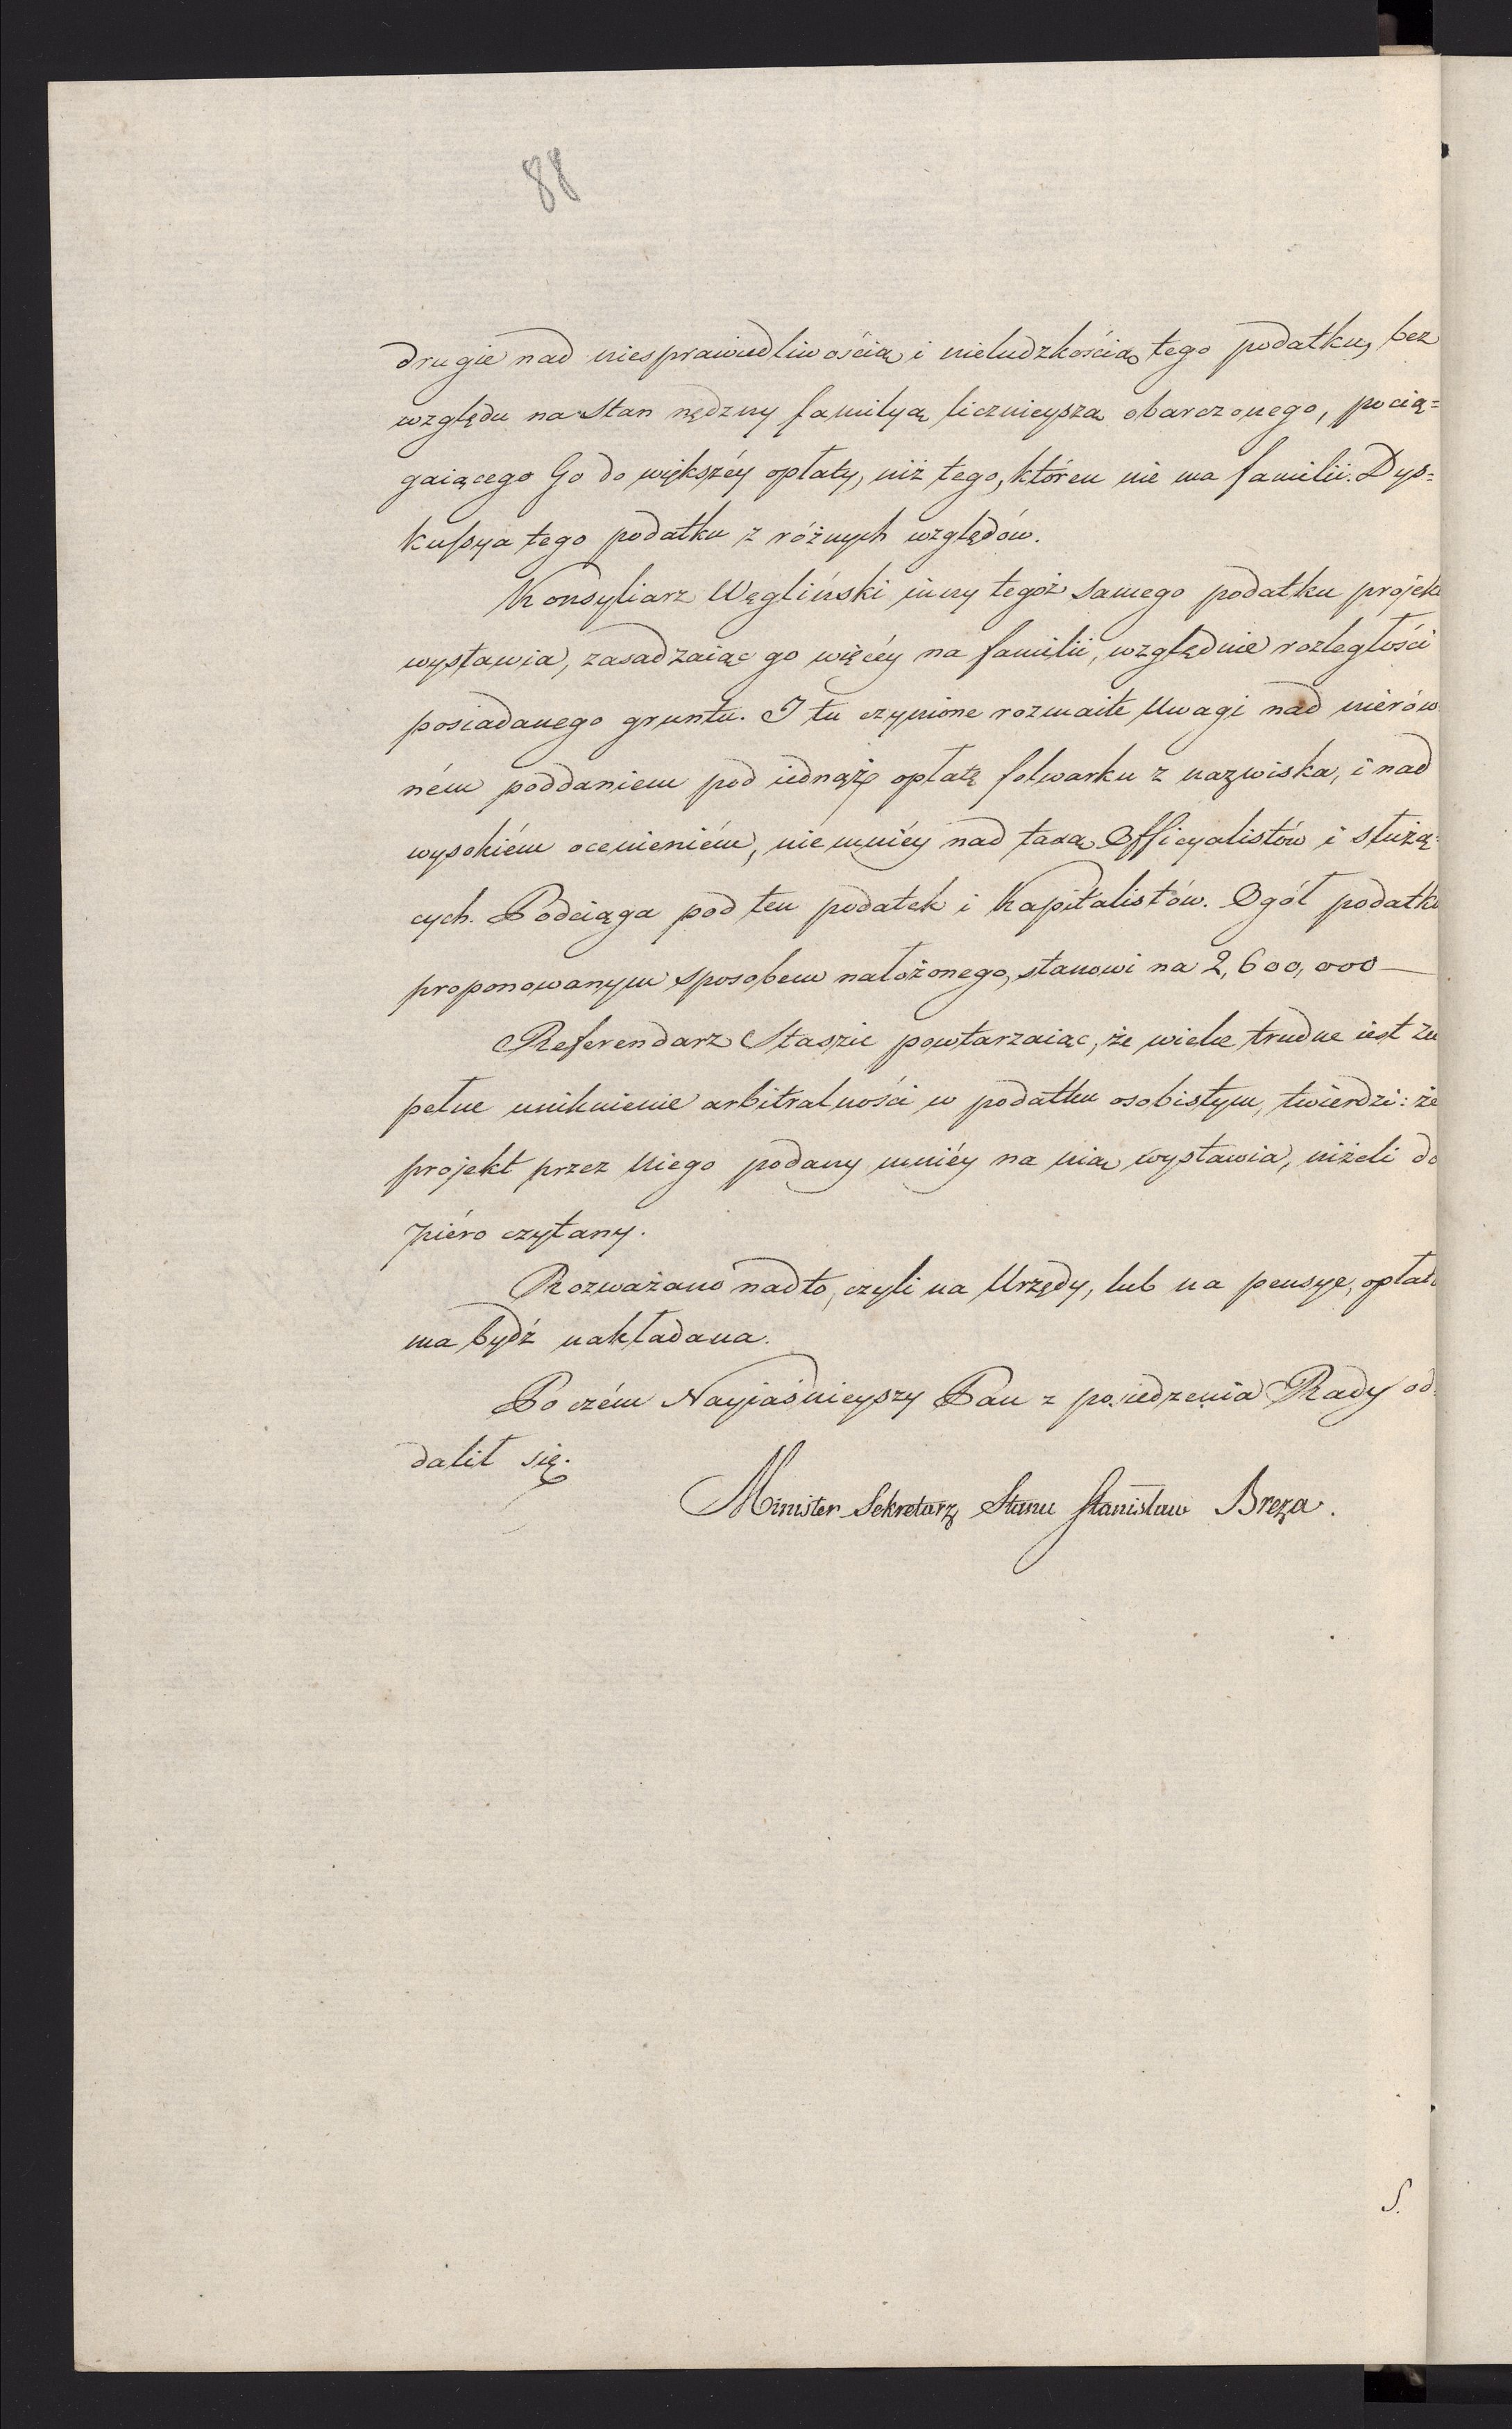 88
drugie nad niesprawiedliwością i nieludzkością tego podatku, bez
względu na stan nędzny familyą licznieyszą obarczonego, pocią=
gaiącego Go do większéy opłaty, niż tego, któren nie ma familii. Dys=
kussya tego podatku z różnych względów.
Konsyliarz Węgliński inny tegoż samego podatku projek
wystawia, zasadzaiąc go więcéy na familii, względnie rozległości
posiadanego gruntu. I tu czynione rozmaite Uwagi nad nierów
ném poddaniem pod iednąż opłatę folwarku z nazwiska, i nad
wysokiém ocenieniém, niemniéy nad taxą Officyalistów i służą=
cych. Podciąga pod ten podatek i Kapitalistów. Ogół podatku
proponowanym sposobem nałożonego, stanowi na 2,600,000 —
Referendarz Staszic powtarzaiąc, że wielce trudne iest zu
pełne uniknienie arbitralności w podatku osobistym, twierdzi: że
projekt przez Niego podany mniéy na nią wystawia, niżeli do
piéro czytany.
Rozważano nadto, czyli na Urzędy, lub na pensye, opłata
ma bydź nakładana.
Po czém Nayiaśnieyszy Pan z posiedzenia Rady od=
dalił się.
Minister Sekretarz Stanu Stanisław Breza.
S.